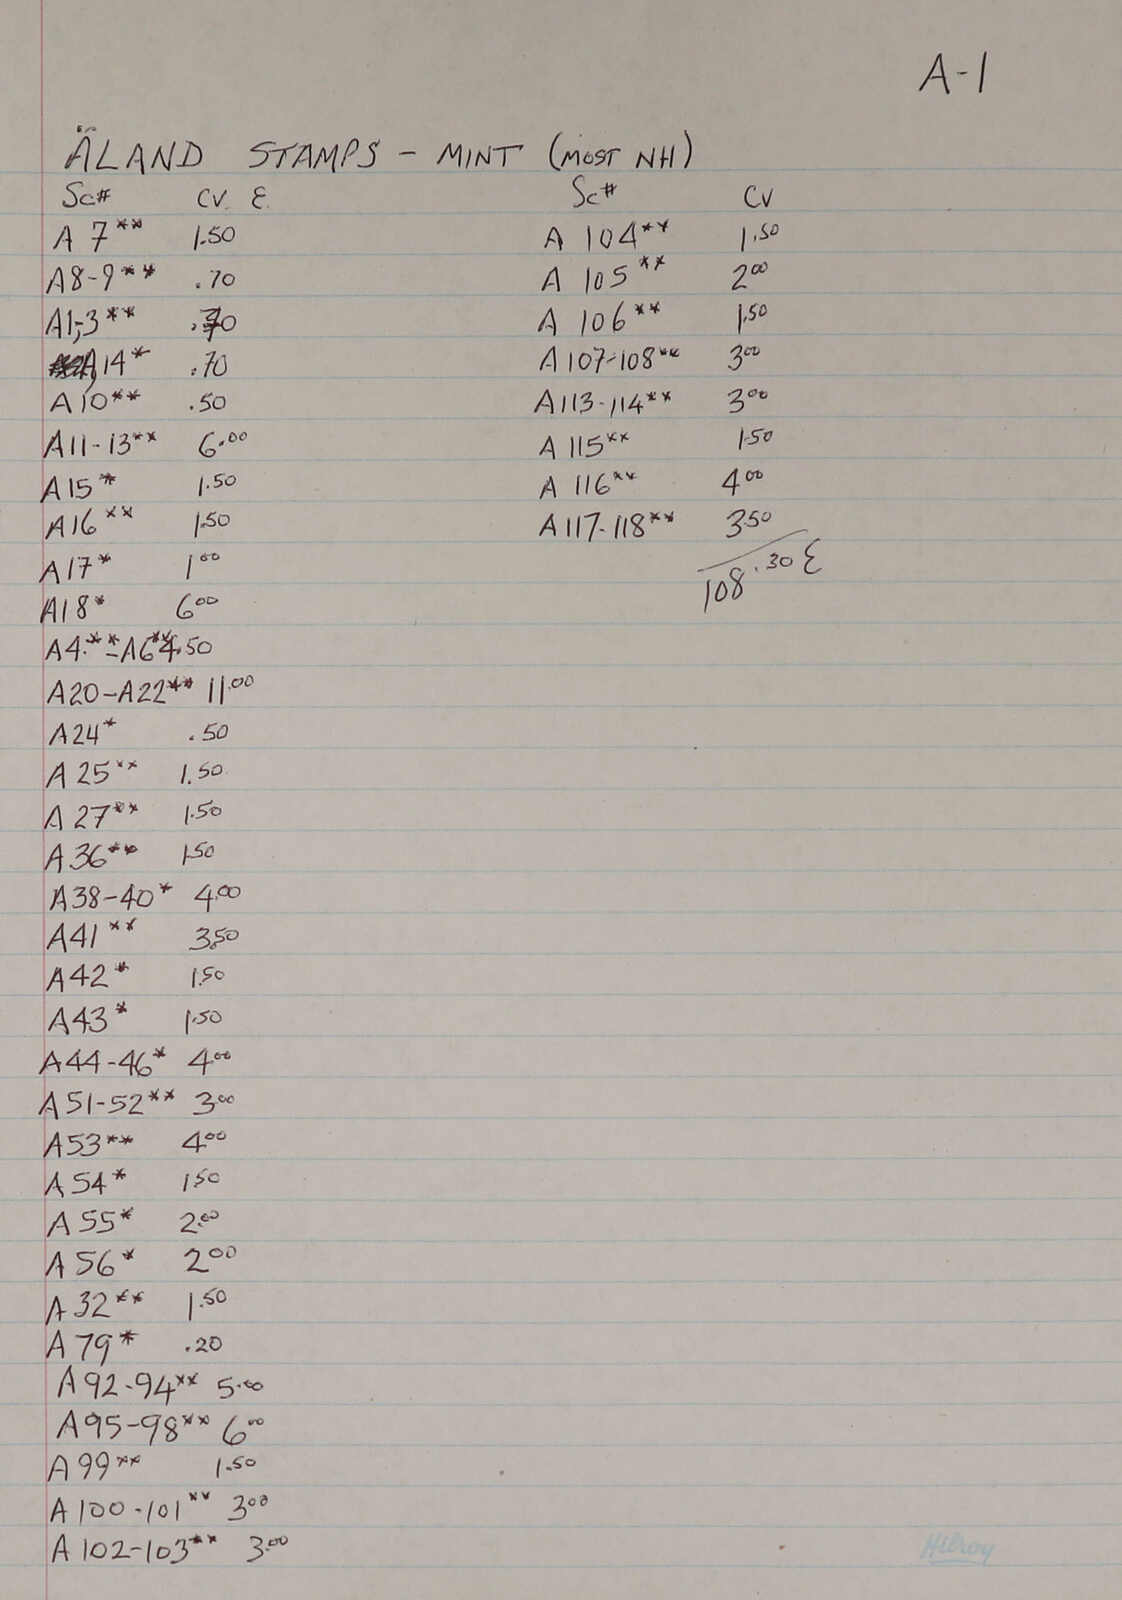 A-1
ÄLAND STAMPS - MINT (MOST NH)
Sc# CV €
A 7** 1.50
A8-9** .70
A1,3**
A14* .70
A10** .50
A11-13** 6.00
A15* 1.50
A16** 1.50
A17* 1.00
A18* 6.00
A4**-A6** 4.50
A20-A22** 11.00
A24* .50
A25** 1.50
A27** 1.50
A36** 1.50
A38-40* 4.00
A41** 3.50
A42* 1.50
A43* 1.50
A44-46* 4.00
A51-52** 3.00
A53** 4.00
A54* 1.50
A55* 2.00
A56* 2.00
A32** 1.50
A79* .20
A92-94** 5.00
A95-98** 6.00
A99** 1.50
A100-101** 3.00
A102-103** 3.00
Sc# CV
A 104** 1.50
A 105** 2.00
A 106** 1.50
A107-108** 3.00
A113-114** 3.00
A 115** 1.50
A 116** 4.00
A117-118** 3.50
108.30 €
Hilroy